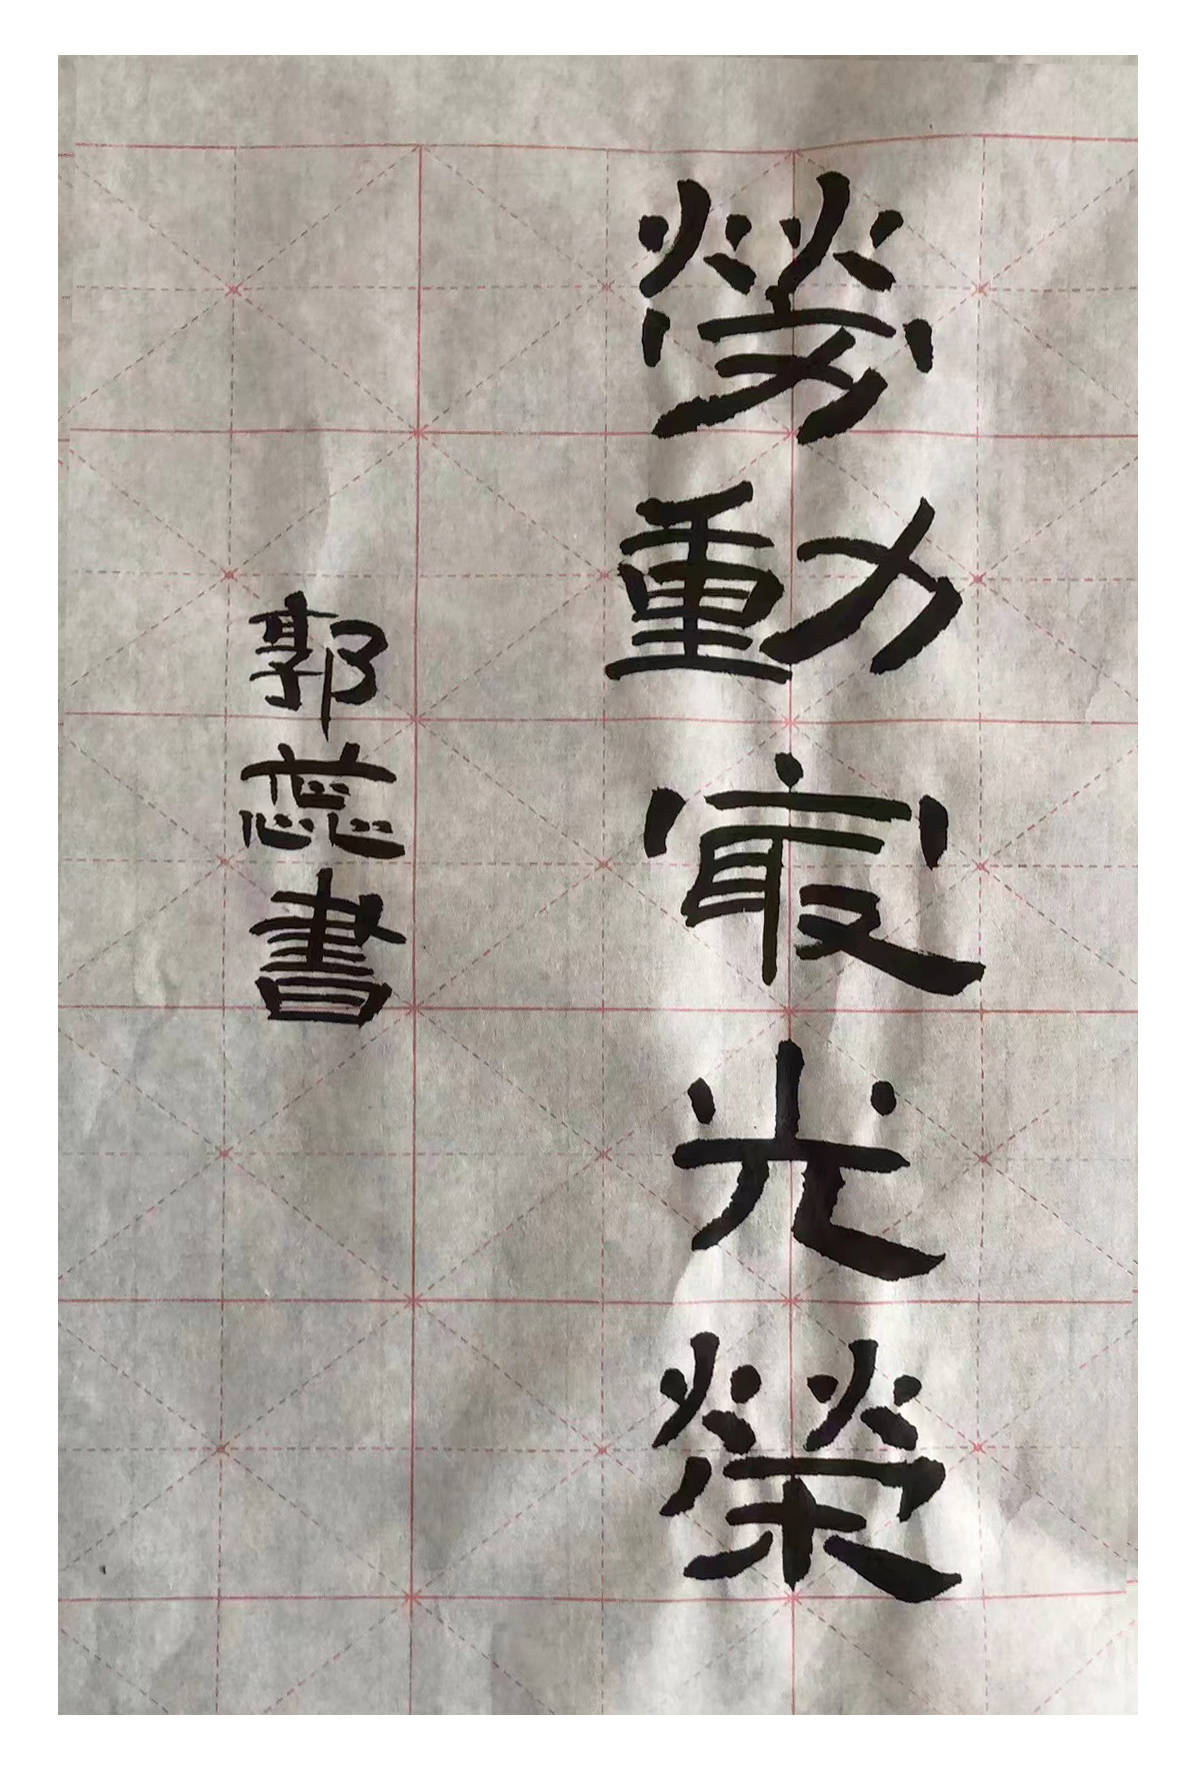 勞動㝡光榮
郭蕊書